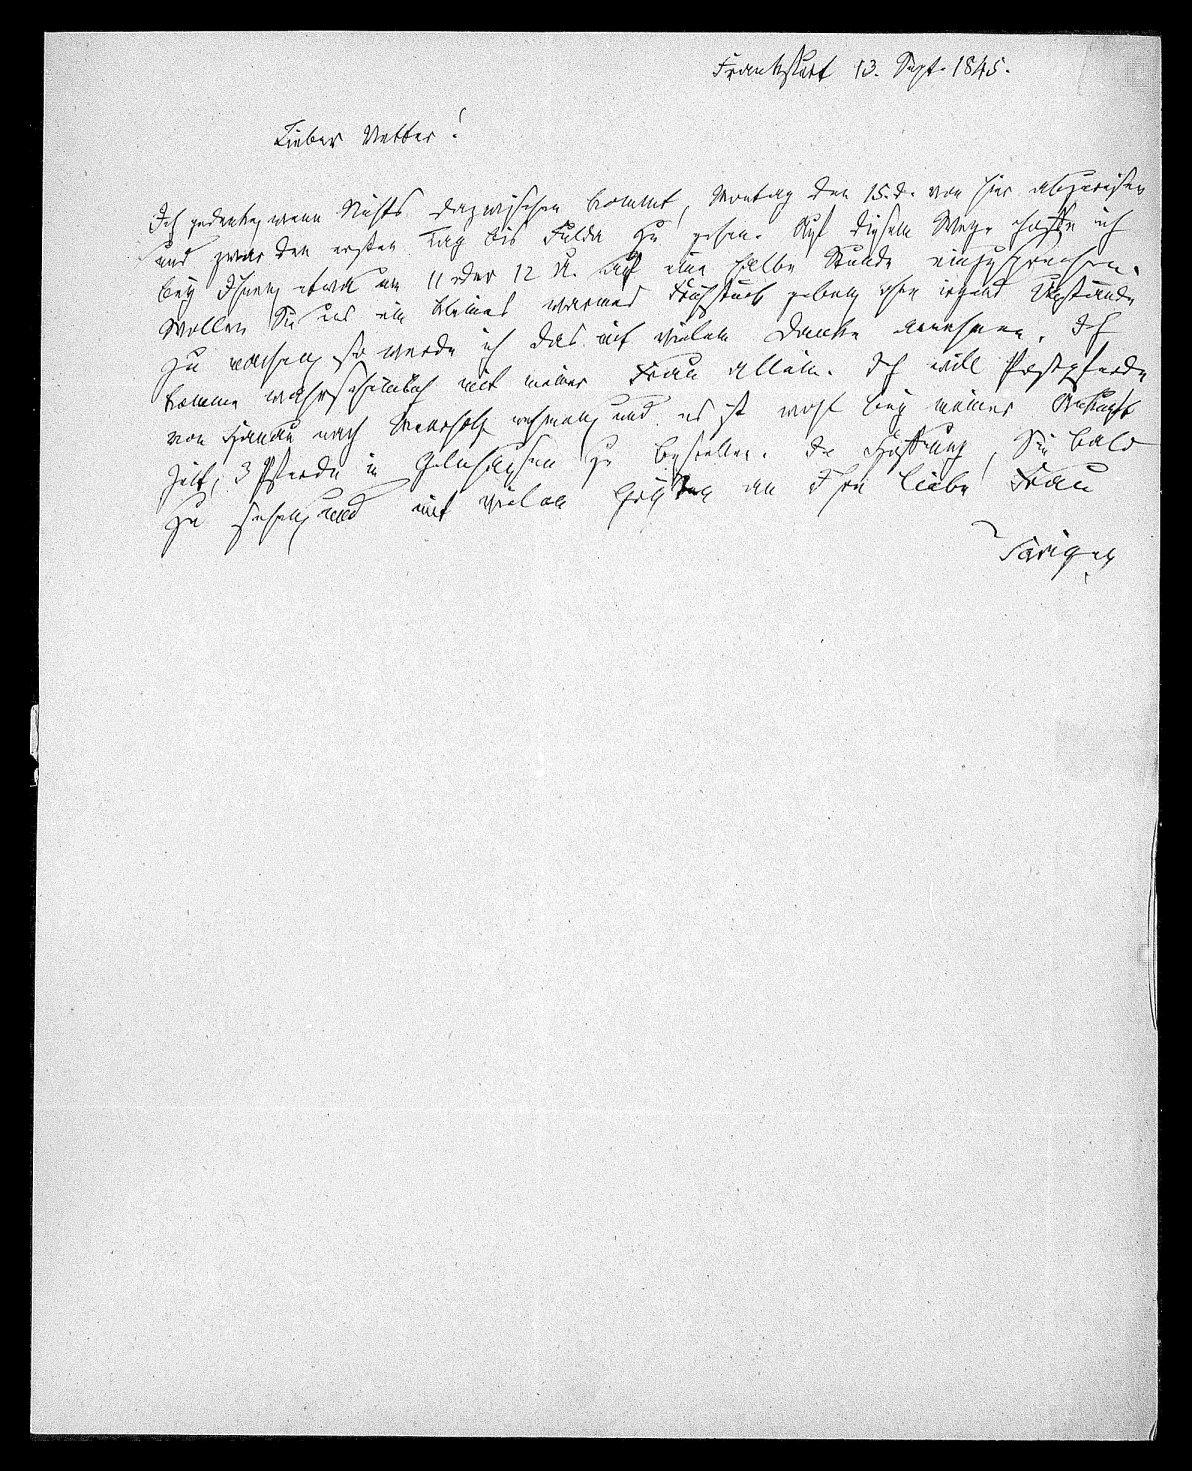 Frankfurt 13. Sept. 1845.
Lieber Vetter!
Ich gedenke, wenn Nichts dazwischen kommt, Montag den 15. d. von hier abzureisen
und zwar den ersten Tag bis Fulda zu gehen. Auf diesem Wege hoffe ich
bey Ihnen etwa um 11 oder 12 U. auf eine halbe Stunde einzusprechen.
Wollen Sie uns ein kleines warmes Frühstück geben, ohne irgend Umstände
zu machen, so werde ich das mit vielem Danke annehmen. Ich
komme wahrscheinlich mit meiner Frau allein. Ich will Postpferde
von Hanau nach Meerholz nehmen, und es ist wohl bey meiner Ankunft
Zeit, 3 Pferde in Gelnhausen zu bestellen. In Hoffnung, Sie bald
zu sehen, und mit vielen Grüßen an Ihre liebe Frau
Savigny